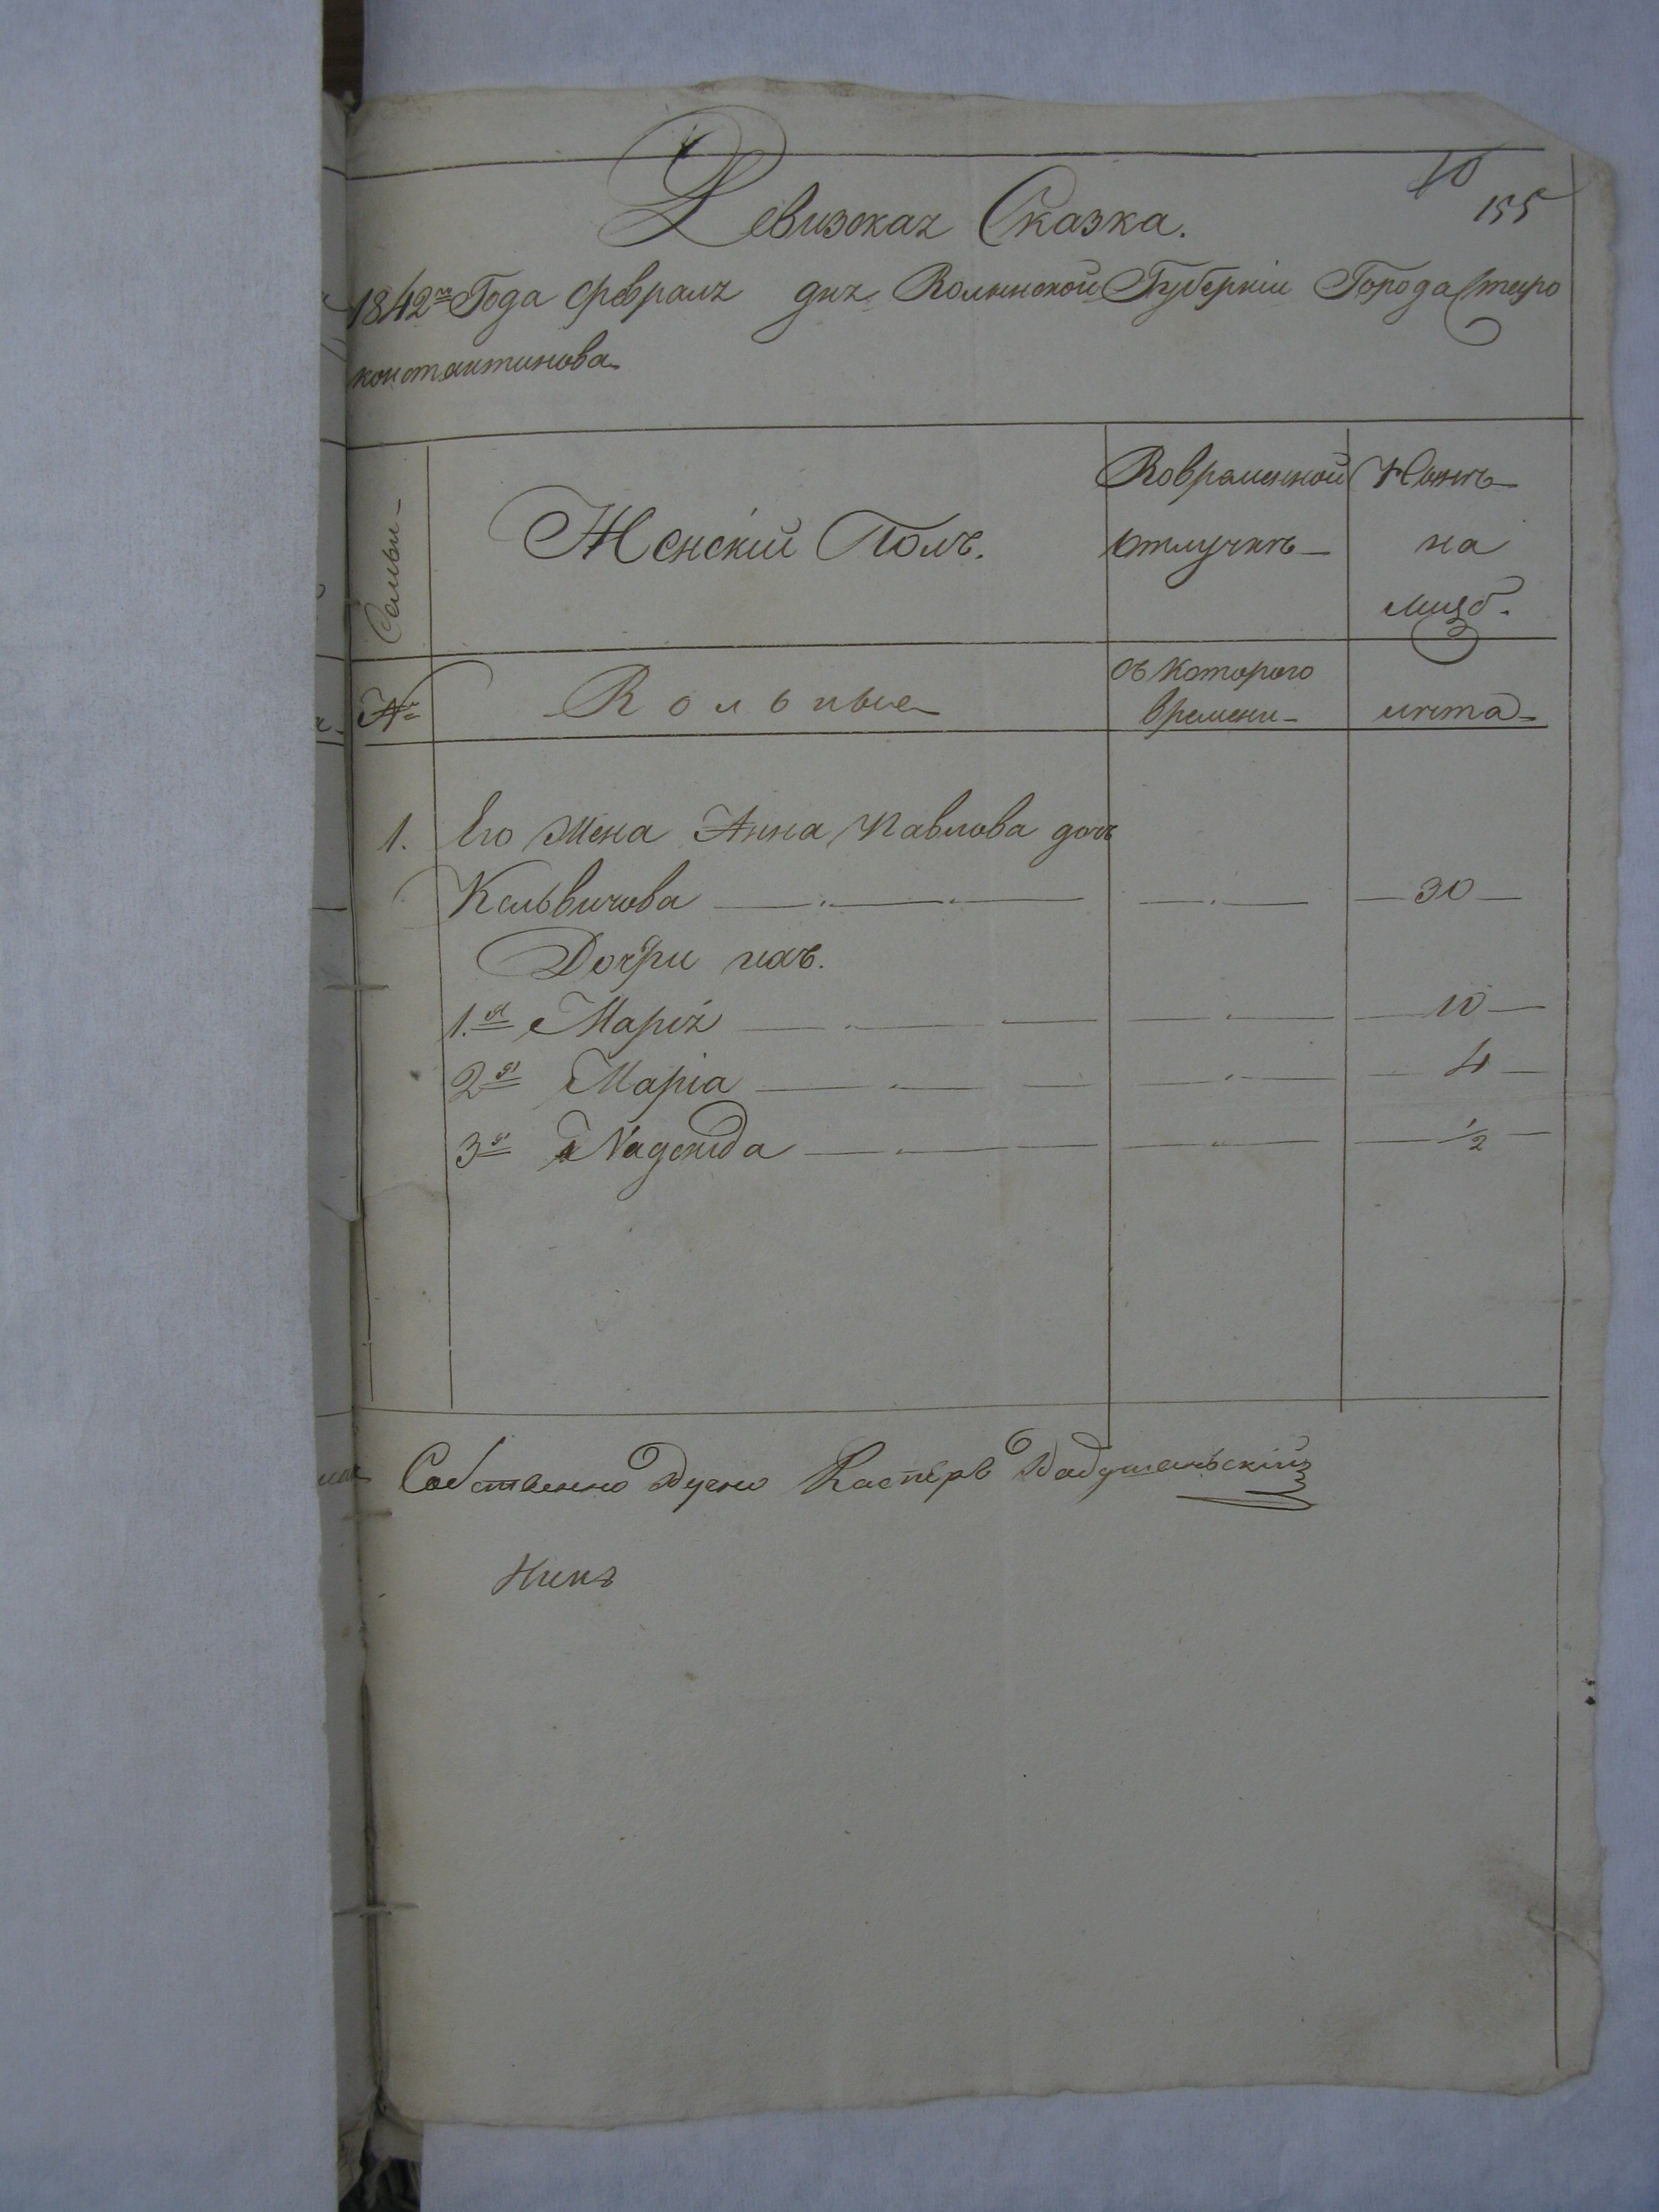 10
155
Ревизская Сказка.
1842го Года февраля дня Волынской Губерніи Города Старо
константинова
Семьи
Женскій Полъ.
Вовременной
отлучкѣ
Нынѣ
на
лицо.
№
Вольные
съ которого
времени
лѣта
1. Его Жена Анна Павлова дочь
30
Дочери ихъ.
1.я Марія 10
2я Маріа 4
3я Nадежда ½
Собственно Ручно Касперъ